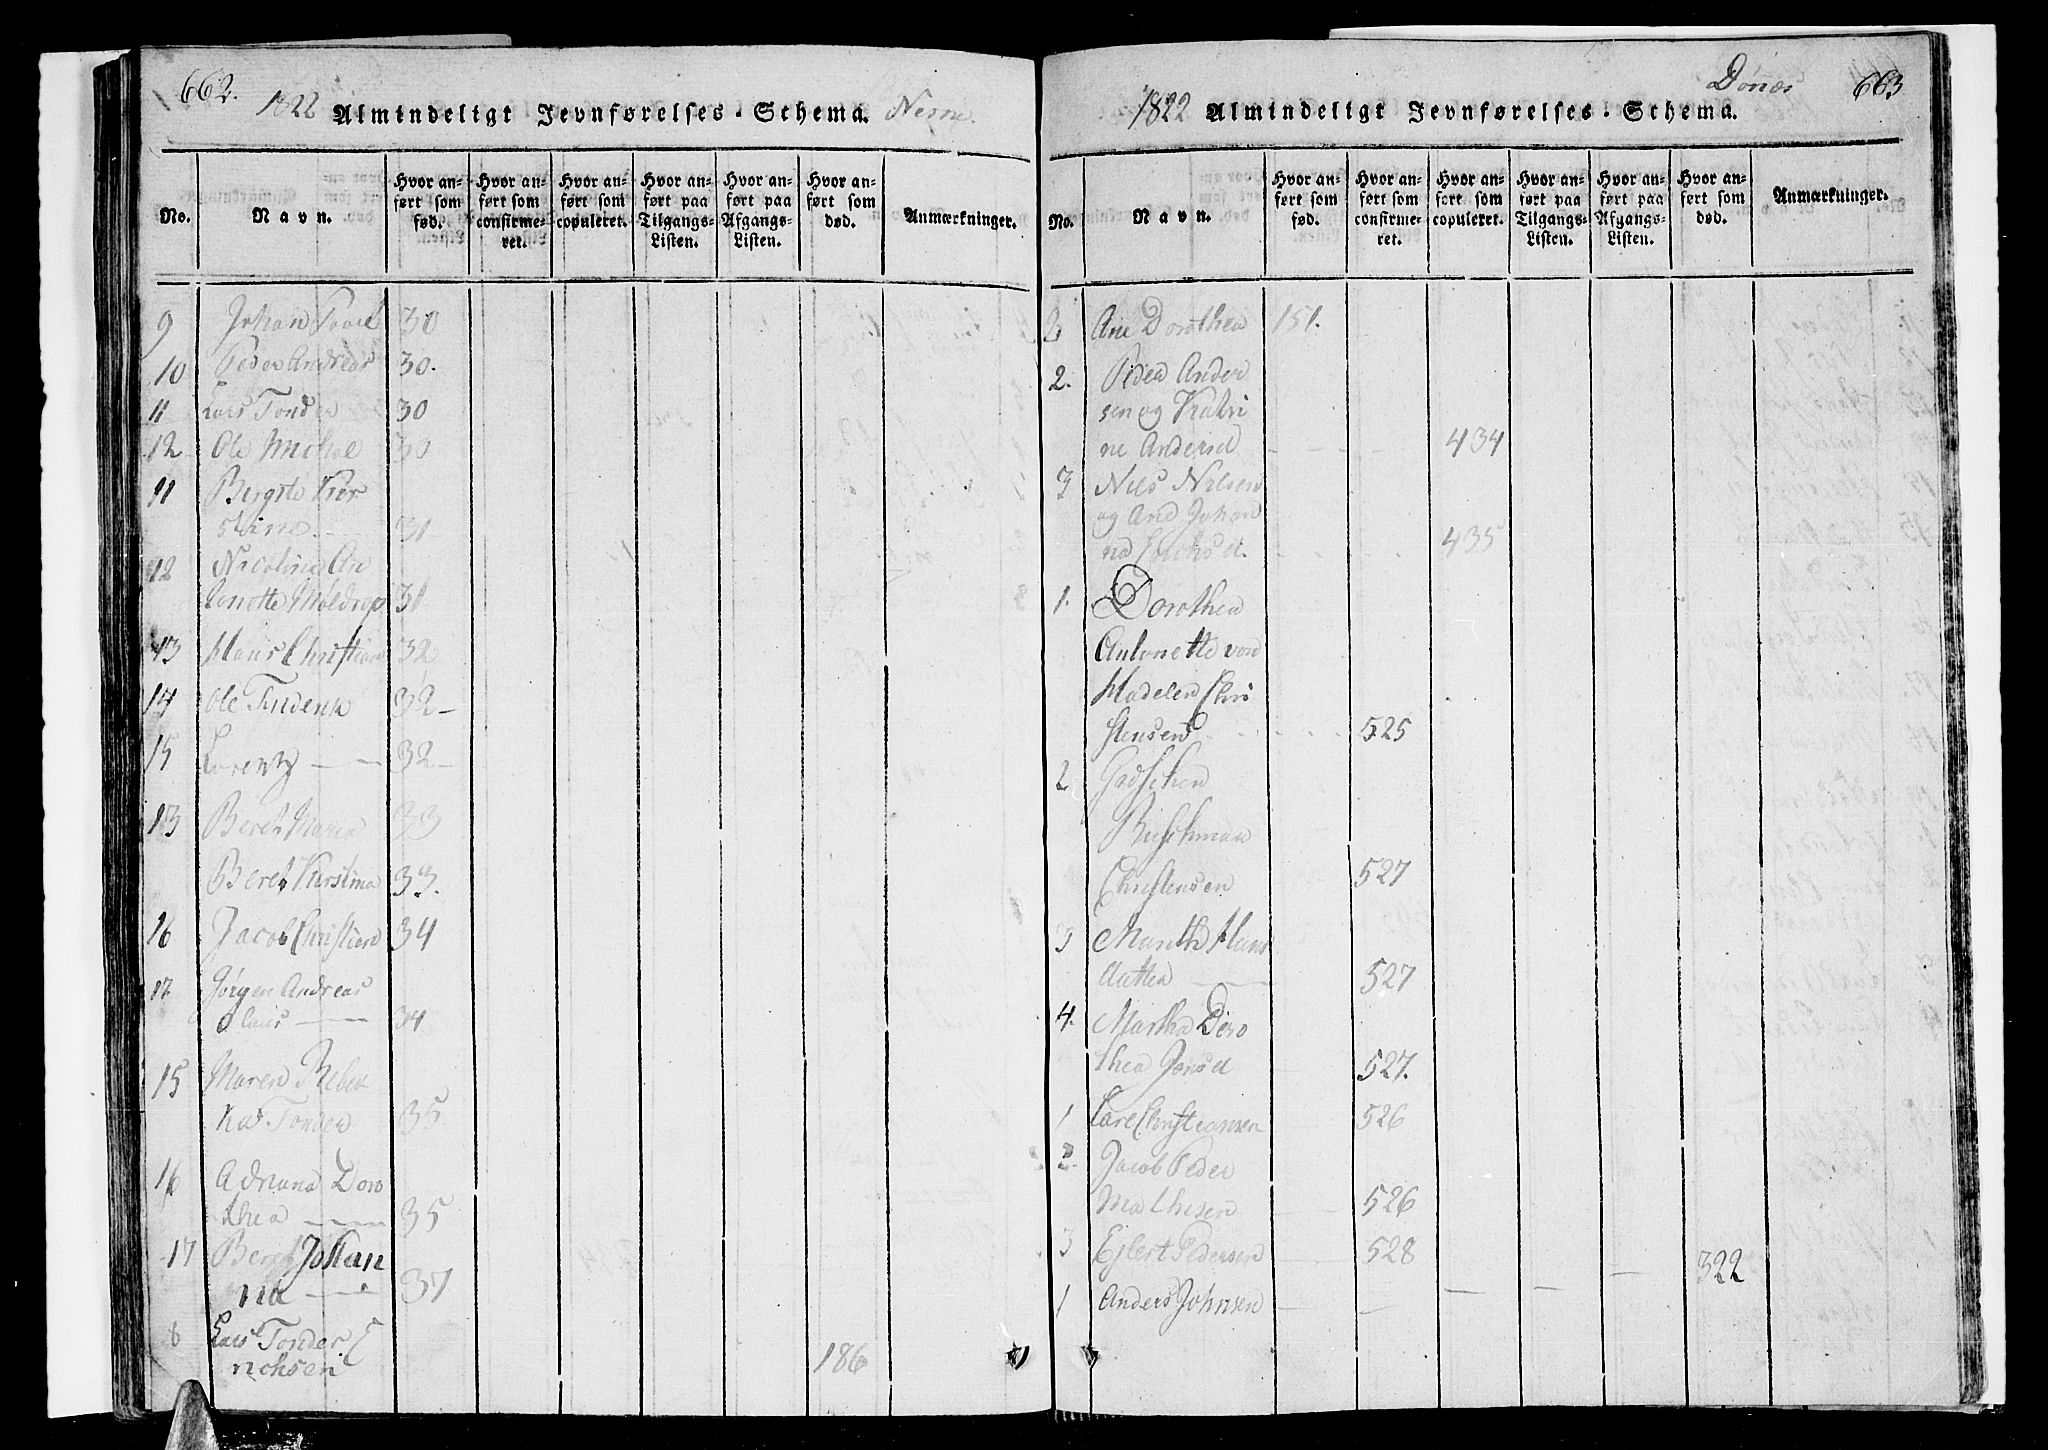 662.
1822 Almindeligt Jevnførelses-Schema. Nesne.
No.
Navn.
Hvor anført som fød.
Hvor anført som confirmeret.
Hvor anført som copuleret.
Hvor anført paa Tilgangs-Listen.
Hvor anført paa Afgangs-Listen.
Hvor anført som død.
Anmærkninger.
9 Johan 30
10 Peder Andreas 30.
11 Lars Tonder 30
12 Ole Michel 30
11 Bergite Kier
stine. 31
12 Nicolina An
tonette Moldrop 31
13 Hans Christian 32
14 Ole 32
15 Lorentz 32
13 Beret Maria 33
Beret Kirstina 33.
16 Jacob Christian 34
17 Jørgen Andreas
Olaus 34
15 Maren Rebek
ka Tonder 35
16 Adriana Doro
thea 35
17 Beret Johan
na 37
8 Lars Tonder E
richsen 186
1822 Almindeligt Jevnførelses-Schema. Dønæs 663
No.
Navn.
Hvor anført som fød.
Hvor anført som confirmeret.
Hvor anført som copuleret.
Hvor anført paa Tilgangs-Listen.
Hvor anført paa Afgangs-Listen.
Hvor anført som død.
Anmærkninger.
2 Ane Dorothea 151.
2. Peder Ander
sen og Katri
ne Andersd 434
3 Nils Nilsen
og Ane Johan
na 435
1. Dorothea
Antonette von
Hadelen Chri
stensen 525
2 Gretchen
Buschman
Christensen 527
3 Marith Hans
datter 527
4. Martha Doro
thea Jensd 527.
1 Lars Christiansen 526
2. Jacob Peder
Mathesen 526
3 Ejlert Pedersen 528
1 Anders Johnsen 322